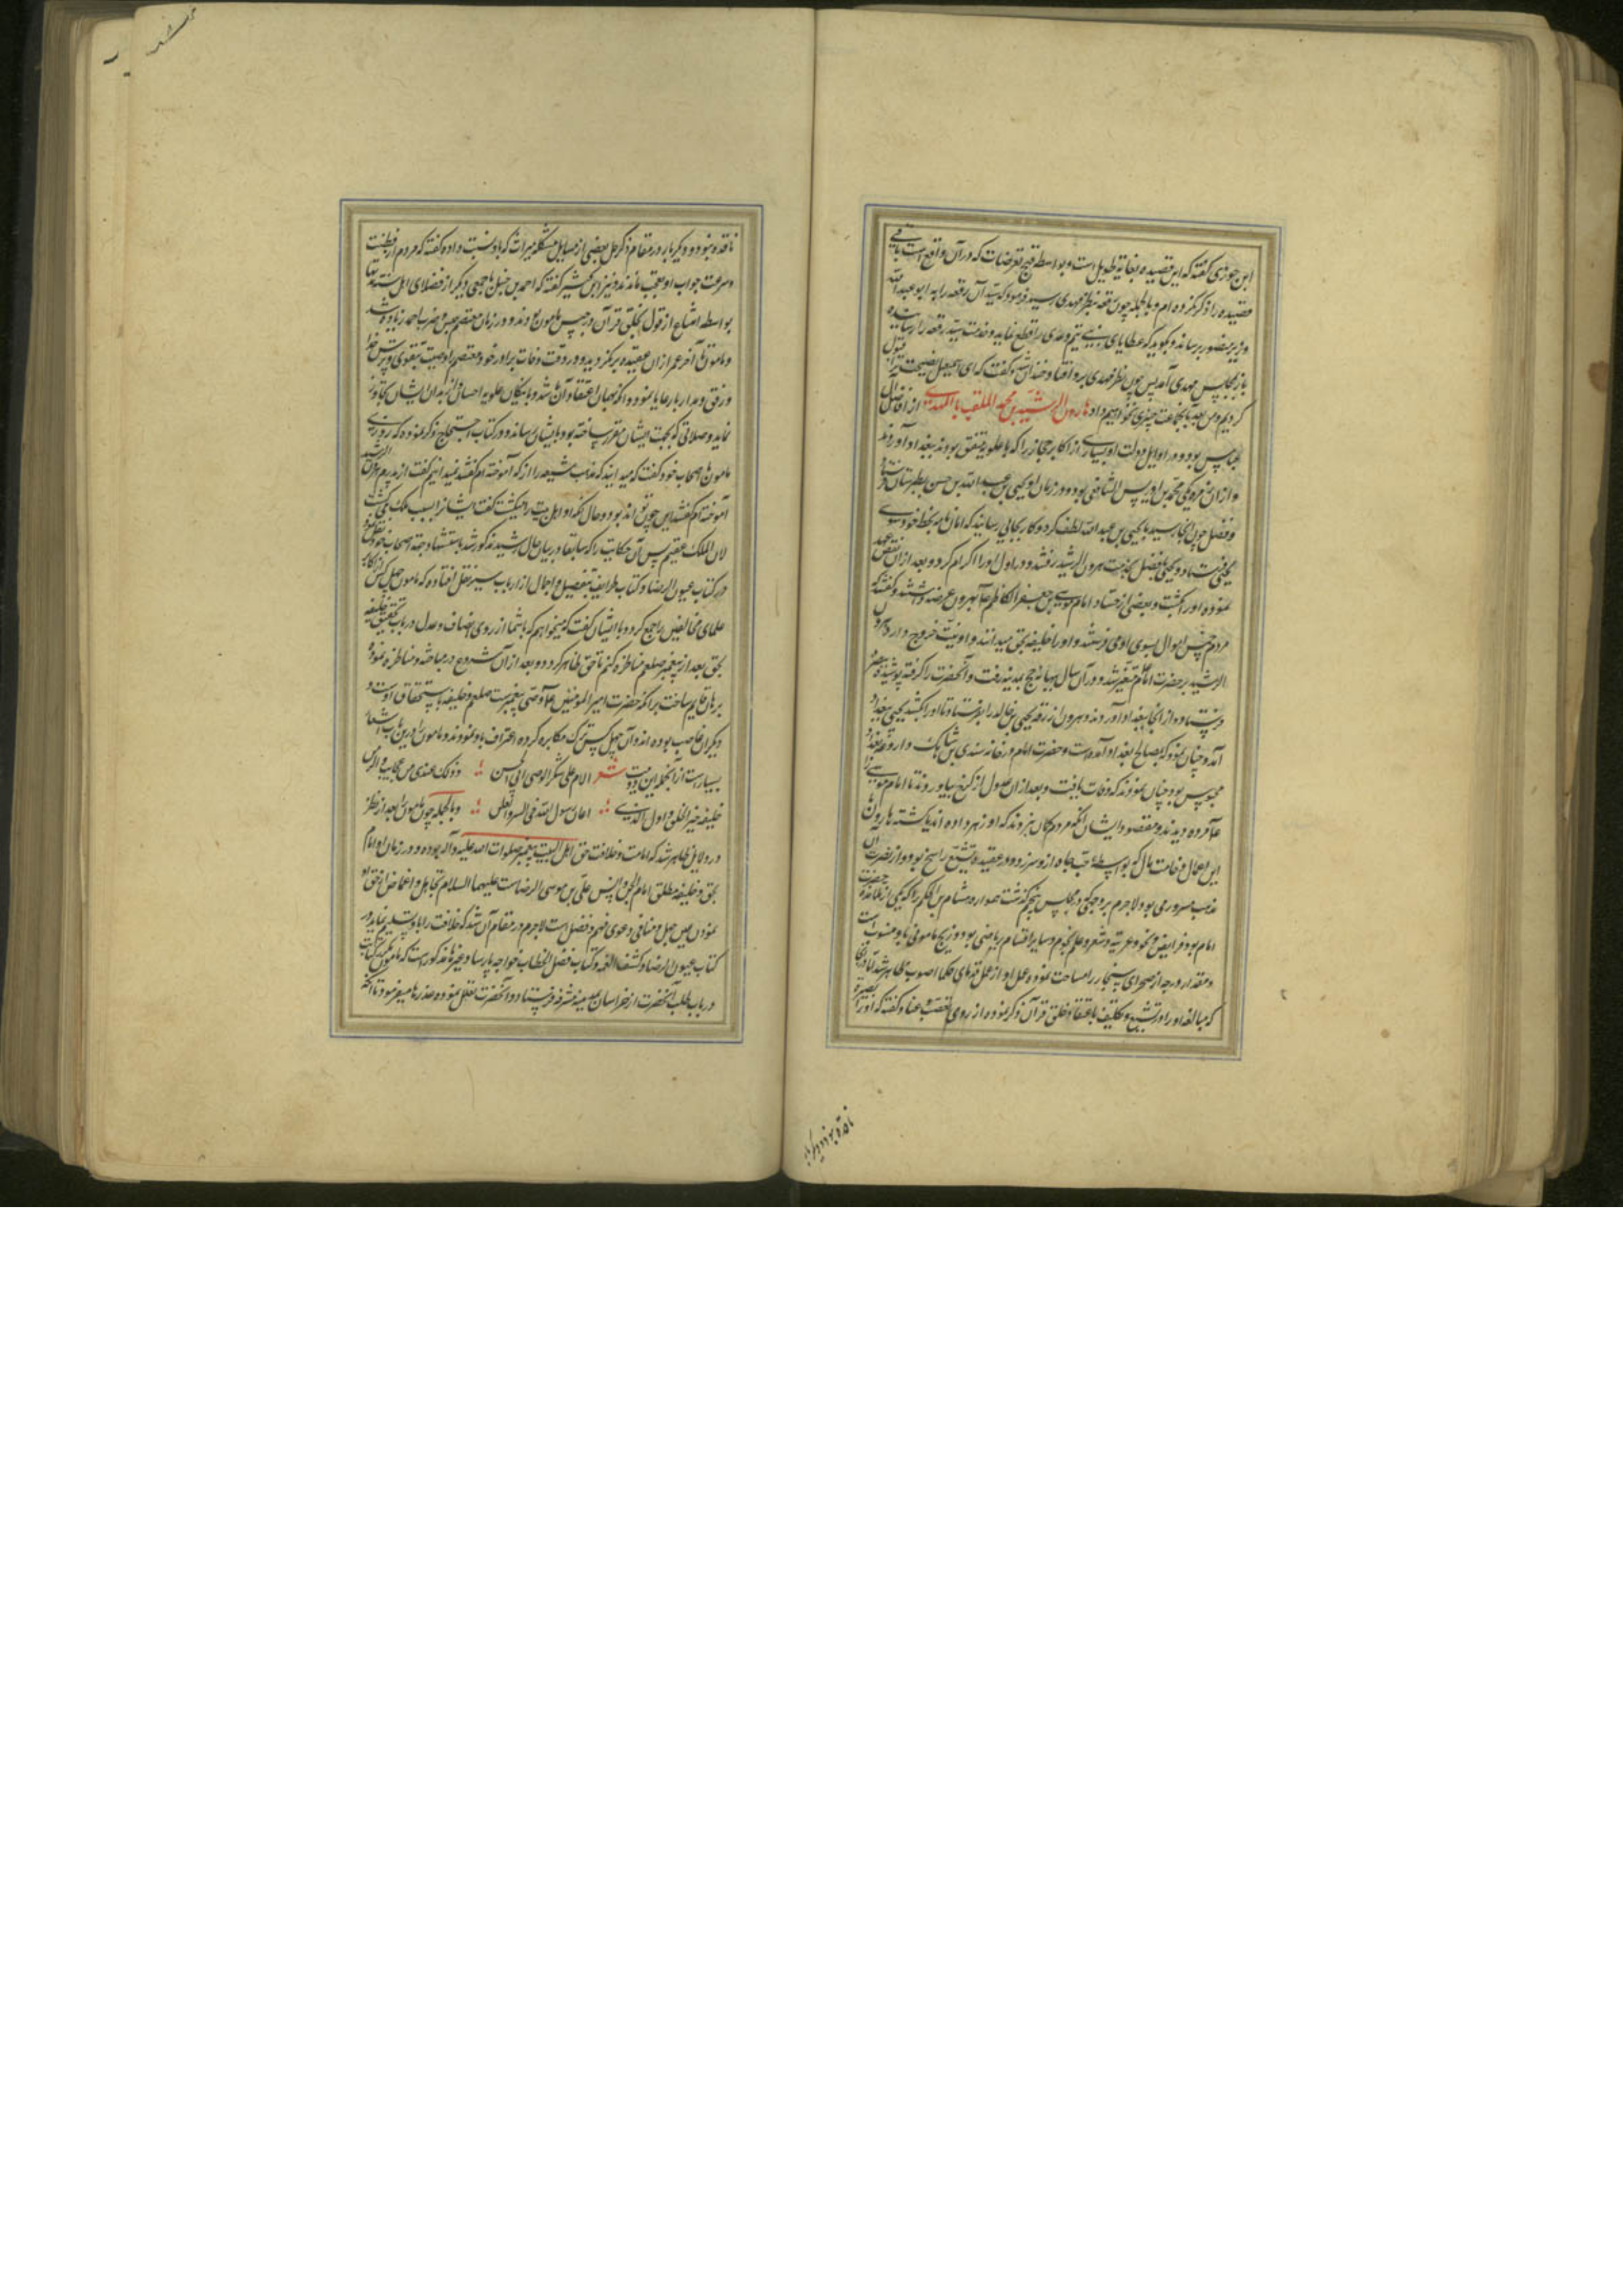 ابن جوزی گفته که این قصیده بغایة طویل است و بواسطه قبح تعرضات که در آن واقع است باقی
قصیده را ذکر نکرده ام و بالجمله چون رقعه بنظر مهدی رسید فرمود که سید آن رقعه را به ابو عبد الله
وزیر منصور برساند و بگوید که عطایای بنی تیم و عدی را قطع نماید و خدمت سید رقعه را رسانیده
باز بمجلس مهدی آمد پس چون نظر مهدی برو افتاد خندان شد و گفت که ای اسمعیل نصیحت ترا قبول
کردیم و من بعد بآنجماعت چیزی نخواهیم داد هارون الرشید بن محمد الملقب بالمهدی از افاضل آل
عباس بود و در اوایل دولت او بسیاری از اکابر حجاز را که با علویه متفق بودند ببغداد آوردند
و از آن زمره یکی محمد بن ادریس الشافعی بود و در زمان او یحیی بن عبد الله بن حسن بطبرستان
و فضل چون آنجا رسید با یحیی بن عبد الله لطف کرد و کار بجایی رسانید که امان نامه بخط خود سوی
یحیی فرستاد و یحیی با فضل بخدمت هرون الرشید رفتند و در اول او را اکرام کرد و بعد از آن نقض عهد
نموده او را بکشت و بعضی از حساد امام موسی بن جعفر الکاظم ع با هرون عرضه داشتند و گفتند که
مردم خمس اموال بسوی او می فرستند و او را خلیفه بحق میدانند و او نیت خروج دارد هرون
الرشید بر حضرت امام متغیر شد و در آن سال ببهانه حج بمدینه رفت و آنحضرت را گرفته پوشیده ببصره
فرستاد و از آنجا ببغداد آوردند و هرون از رقه یحیی بن خالد را بفرستاد تا او را بکشد یحیی ببغداد
آمد و چنان نمود که بمصالح بغداد آمده است و حضرت امام در خانه سندی بن شاهک داروغه بغداد
محبوس بود چنان نمودند که وفات یافت و بعد از آن عدول از کرخ بیاوردند تا امام موسی را
ع مرده دیدند و مقصود ایشان آنکه مردم گمان نبرند که او زهر داده اند یا کشته هارون
این اعمال وخامت مآل که بواسطه حب جاه ازو سر زد و در عقیده تشیع راسخ بود و از نصرت آن
مذهب مسرور می بود لاجرم بر وجهی که در مجلس پنجم گذشت همواره هشام بن الحکم را که یکی از تلامذه حضرت
امام بود فرایض و نحو و عربیة و شعر و علم نجوم و سایر اقسام ریاضی بود و زیج مامونی باو منسوبست
و مقدار درجه از صحرای سنجار را مساحت نموده عمل او از عمل قدمای حکما اصوب ظاهر شد
که مبالغه او را در تشیع و تکلیف باعتقاد خلق قرآن ذکر نموده از روی تعصب و عناد گفته که او را بصیرة
ناقده نبود و دیگر بار
ناقده نبود و دیگر بار در مقام ذکر حل بعضی از مسایل مشکله میراث که باو نسبت داده گفته که مردم از فطنت
و سرعت جواب او بعجب ماندند و نیز ابن کثیر گفته که احمد بن حنبل با جمعی دیگر از فضلای اهل سنت
بواسطه امتناع از قول بخلق قرآن در حبس مامون بودند و در زمان معتصم حبس و ضرب احمد زیاده شد
و مامون تا آخر عمر از آن عقیده بر نگردید و در وقت وفات برادر خود معتصم را وصیت بتقوی و ترس خدا
و رفق و مدارا با رعایا نمود و
نماید و صلاتی که بجهت ایشان مقرر ساخته بود بایشان رساند و در کتاب احتجاج ذکر نموده که روزی
مامون با اصحاب خود گفت که میدانید که مذهب شیعه را از که آموخته ام گفتند نمیدانیم گفت از پدرم هرون الرشید
آموخته ام گفتند این چون تواند بود و حال آنکه او اهل بیت را میکشت گفت ایشانرا بسبب ملک می کشت
لان الملک عقیم پس آن حکایت را که سابقا در بیان حال رشید مذکور شد باستشهاد جهة اصحاب خود نقل نمود
در کتاب عیون الرضا و کتاب طرایف بتفصیل و اجمال از ارباب سیر نقل افتاده که مامون چهل کس از اکابر
علمای مخالفین را جمع کرد و با ایشان گفت که میخواهم که با شما از روی انصاف و عدل در باب تحقیق خلیفه
بحق بعد از پیغمبر صلعم مناظره کنم تا حق ظاهر گردد و بعد از آن شروع در مباحثه و مناظره نموده
برهان قایم ساخت بر آنکه حضرت امیر المومنین ع وصی پیغمبرست صلعم و خلیفه باستحقاق اوست و
دیگران غاصب بوده اند و آن چهل کس ترک مکابره کرده اعتراف باو نمودند و مامون را درین باب اشعار
بسیارست از آنجمله این دو بیت شعر الام علی شکر الوصی ابی الحسن و ذلک عندی من عجایب ذی الزمن
خلیفه خیر الخلق و اول الذی اعان رسول الله فی السر و العلن و بالجمله چون مامون را بعد از نظر
در دلایل ظاهر شد که امامت و خلافت حق اهل البیت پیغمبر صلوات الله علیه و آله بوده و در زمان او امام
بحق و خلیفه مطلق امام الجن و الانس علی بن موسی الرضاست علیهما السلام تجاهل و اغماض از حق او
نمودن عین جهل و منافی دعوی فهم و فضل است لاجرم در مقام آن شد که خلافت را باو تسلیم نماید و در
کتاب عیون الرضا و کشف الغمه و کتاب فصل الخطاب خواجه پارسا و غیرها مذکورست که مامون
در باب طلب آنحضرت از خراسان بمدینه مشرفه فرستاد و آنحضرت تعلل نموده عذرها میفرمود تا آنکه